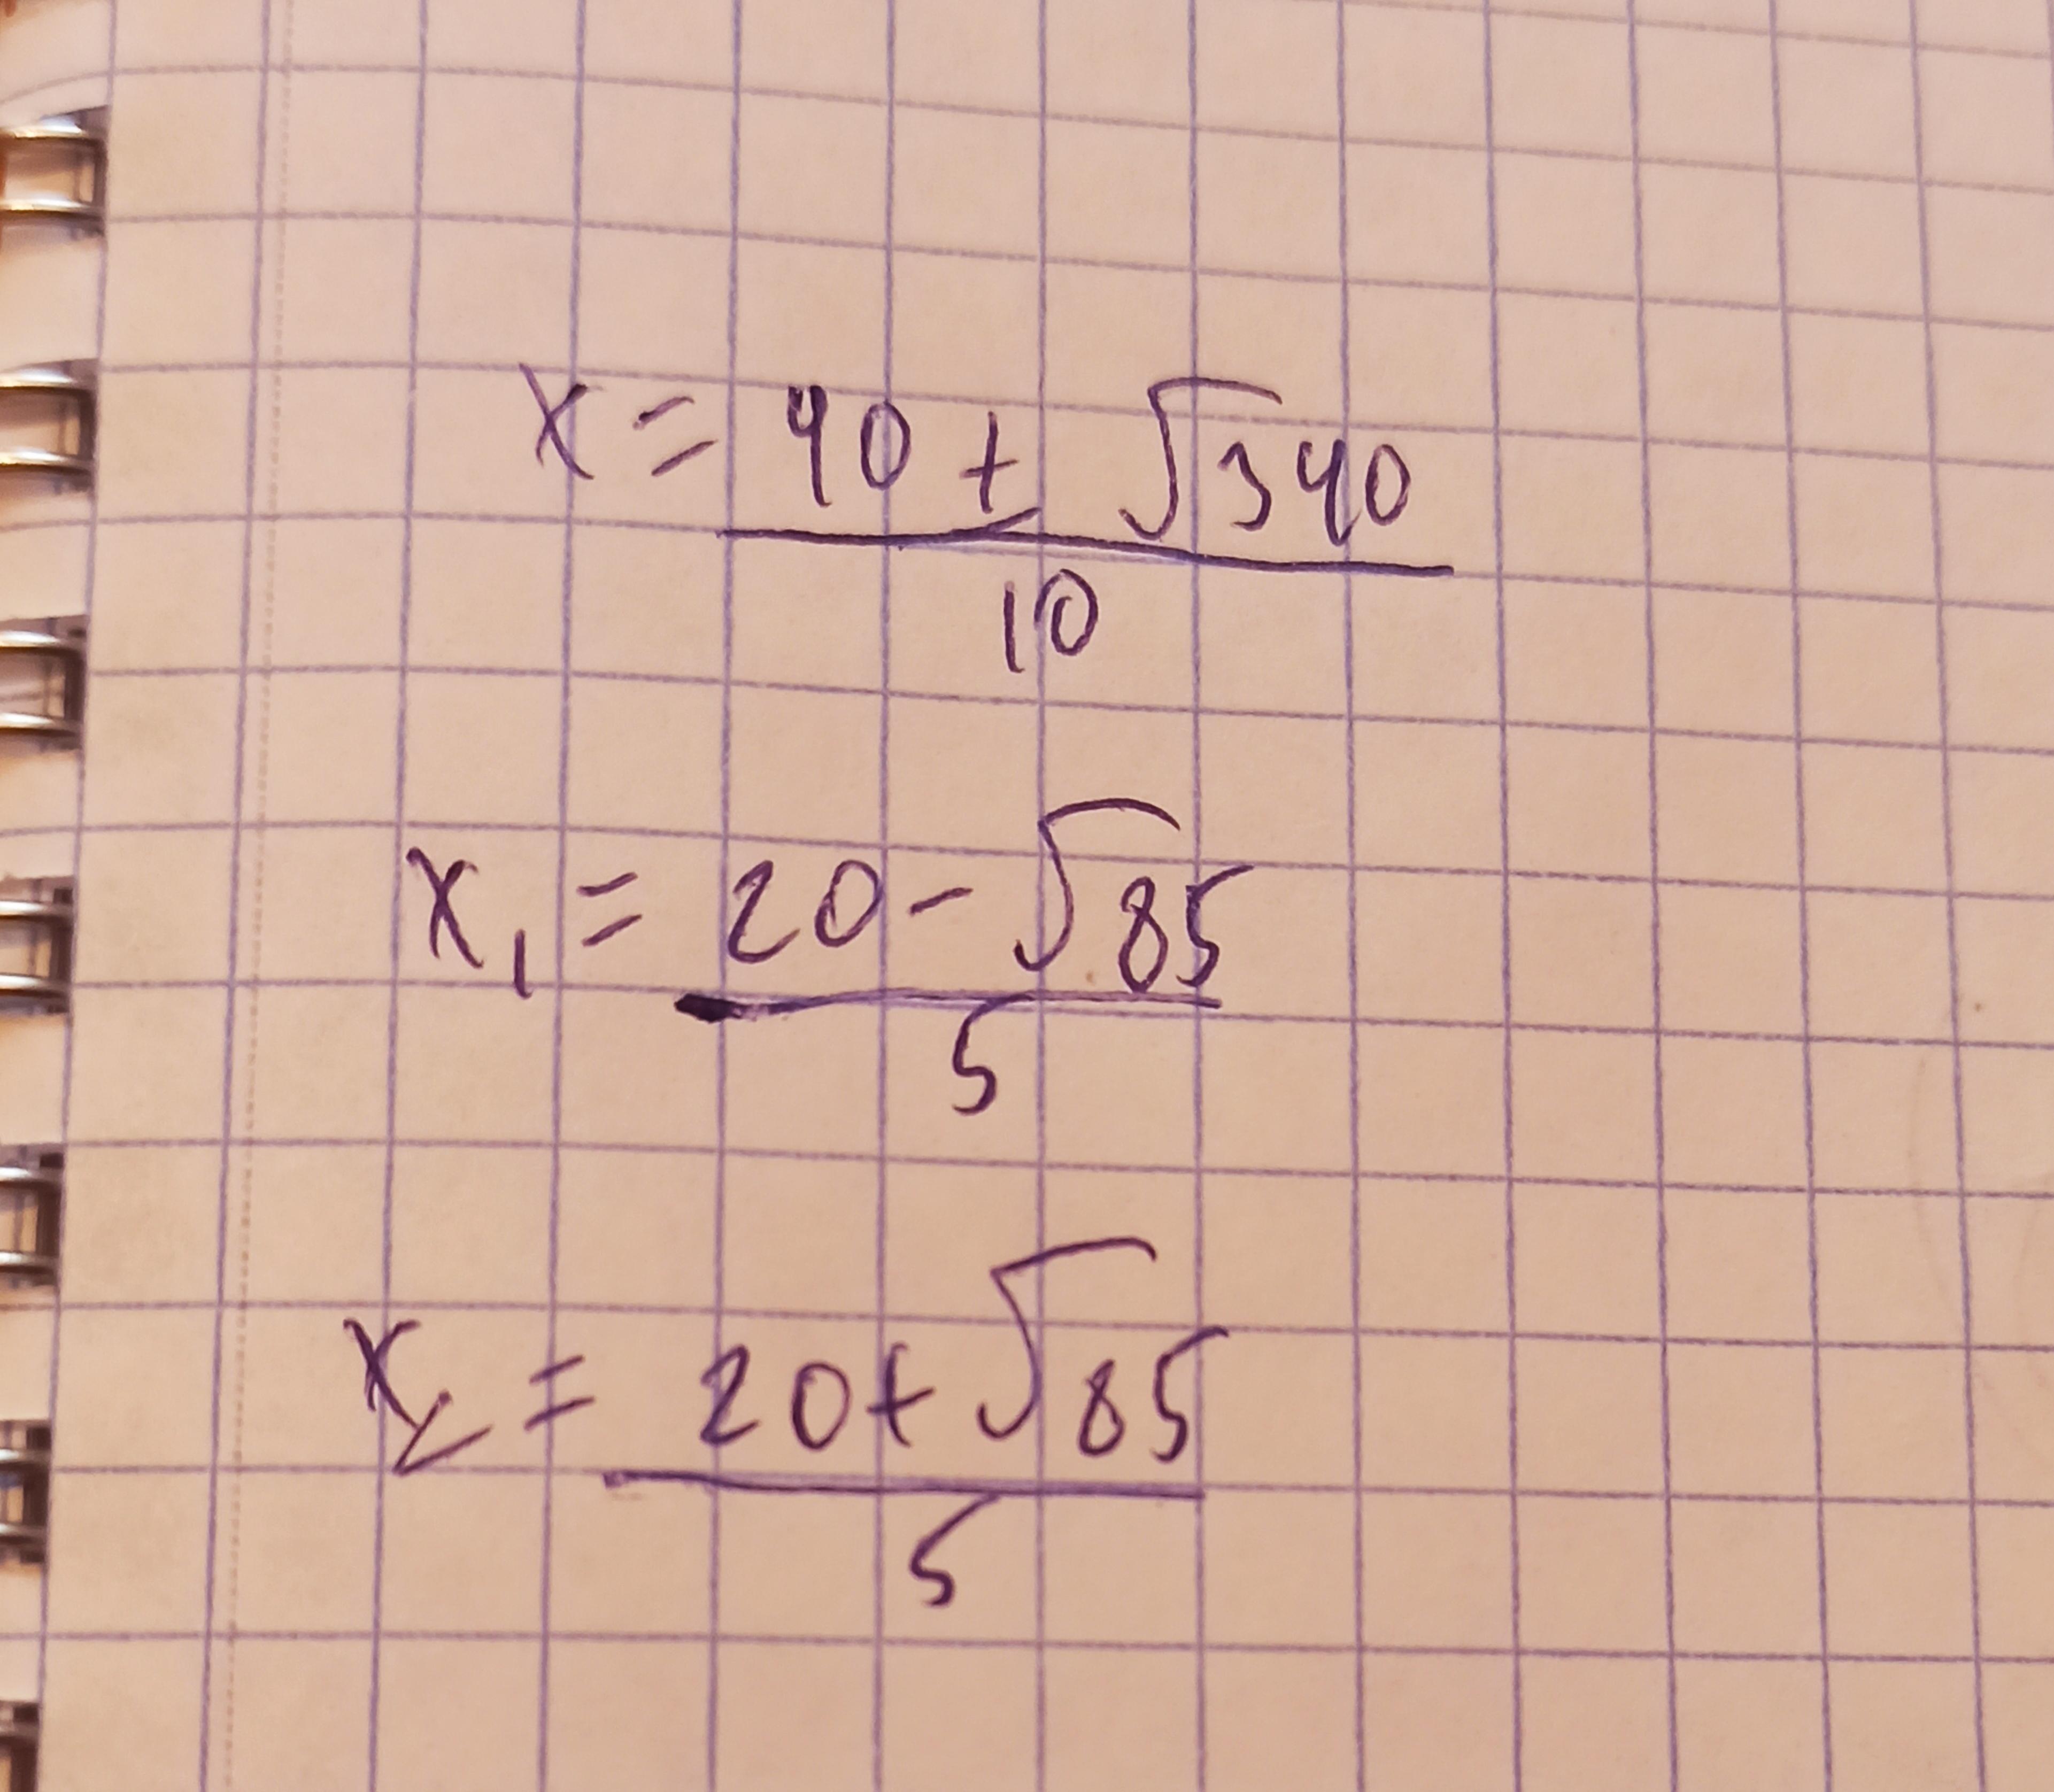 x = (40 ± √340) / 10
x₁ = (20 - √85) / 5
x₂ = (20 + √85) / 5